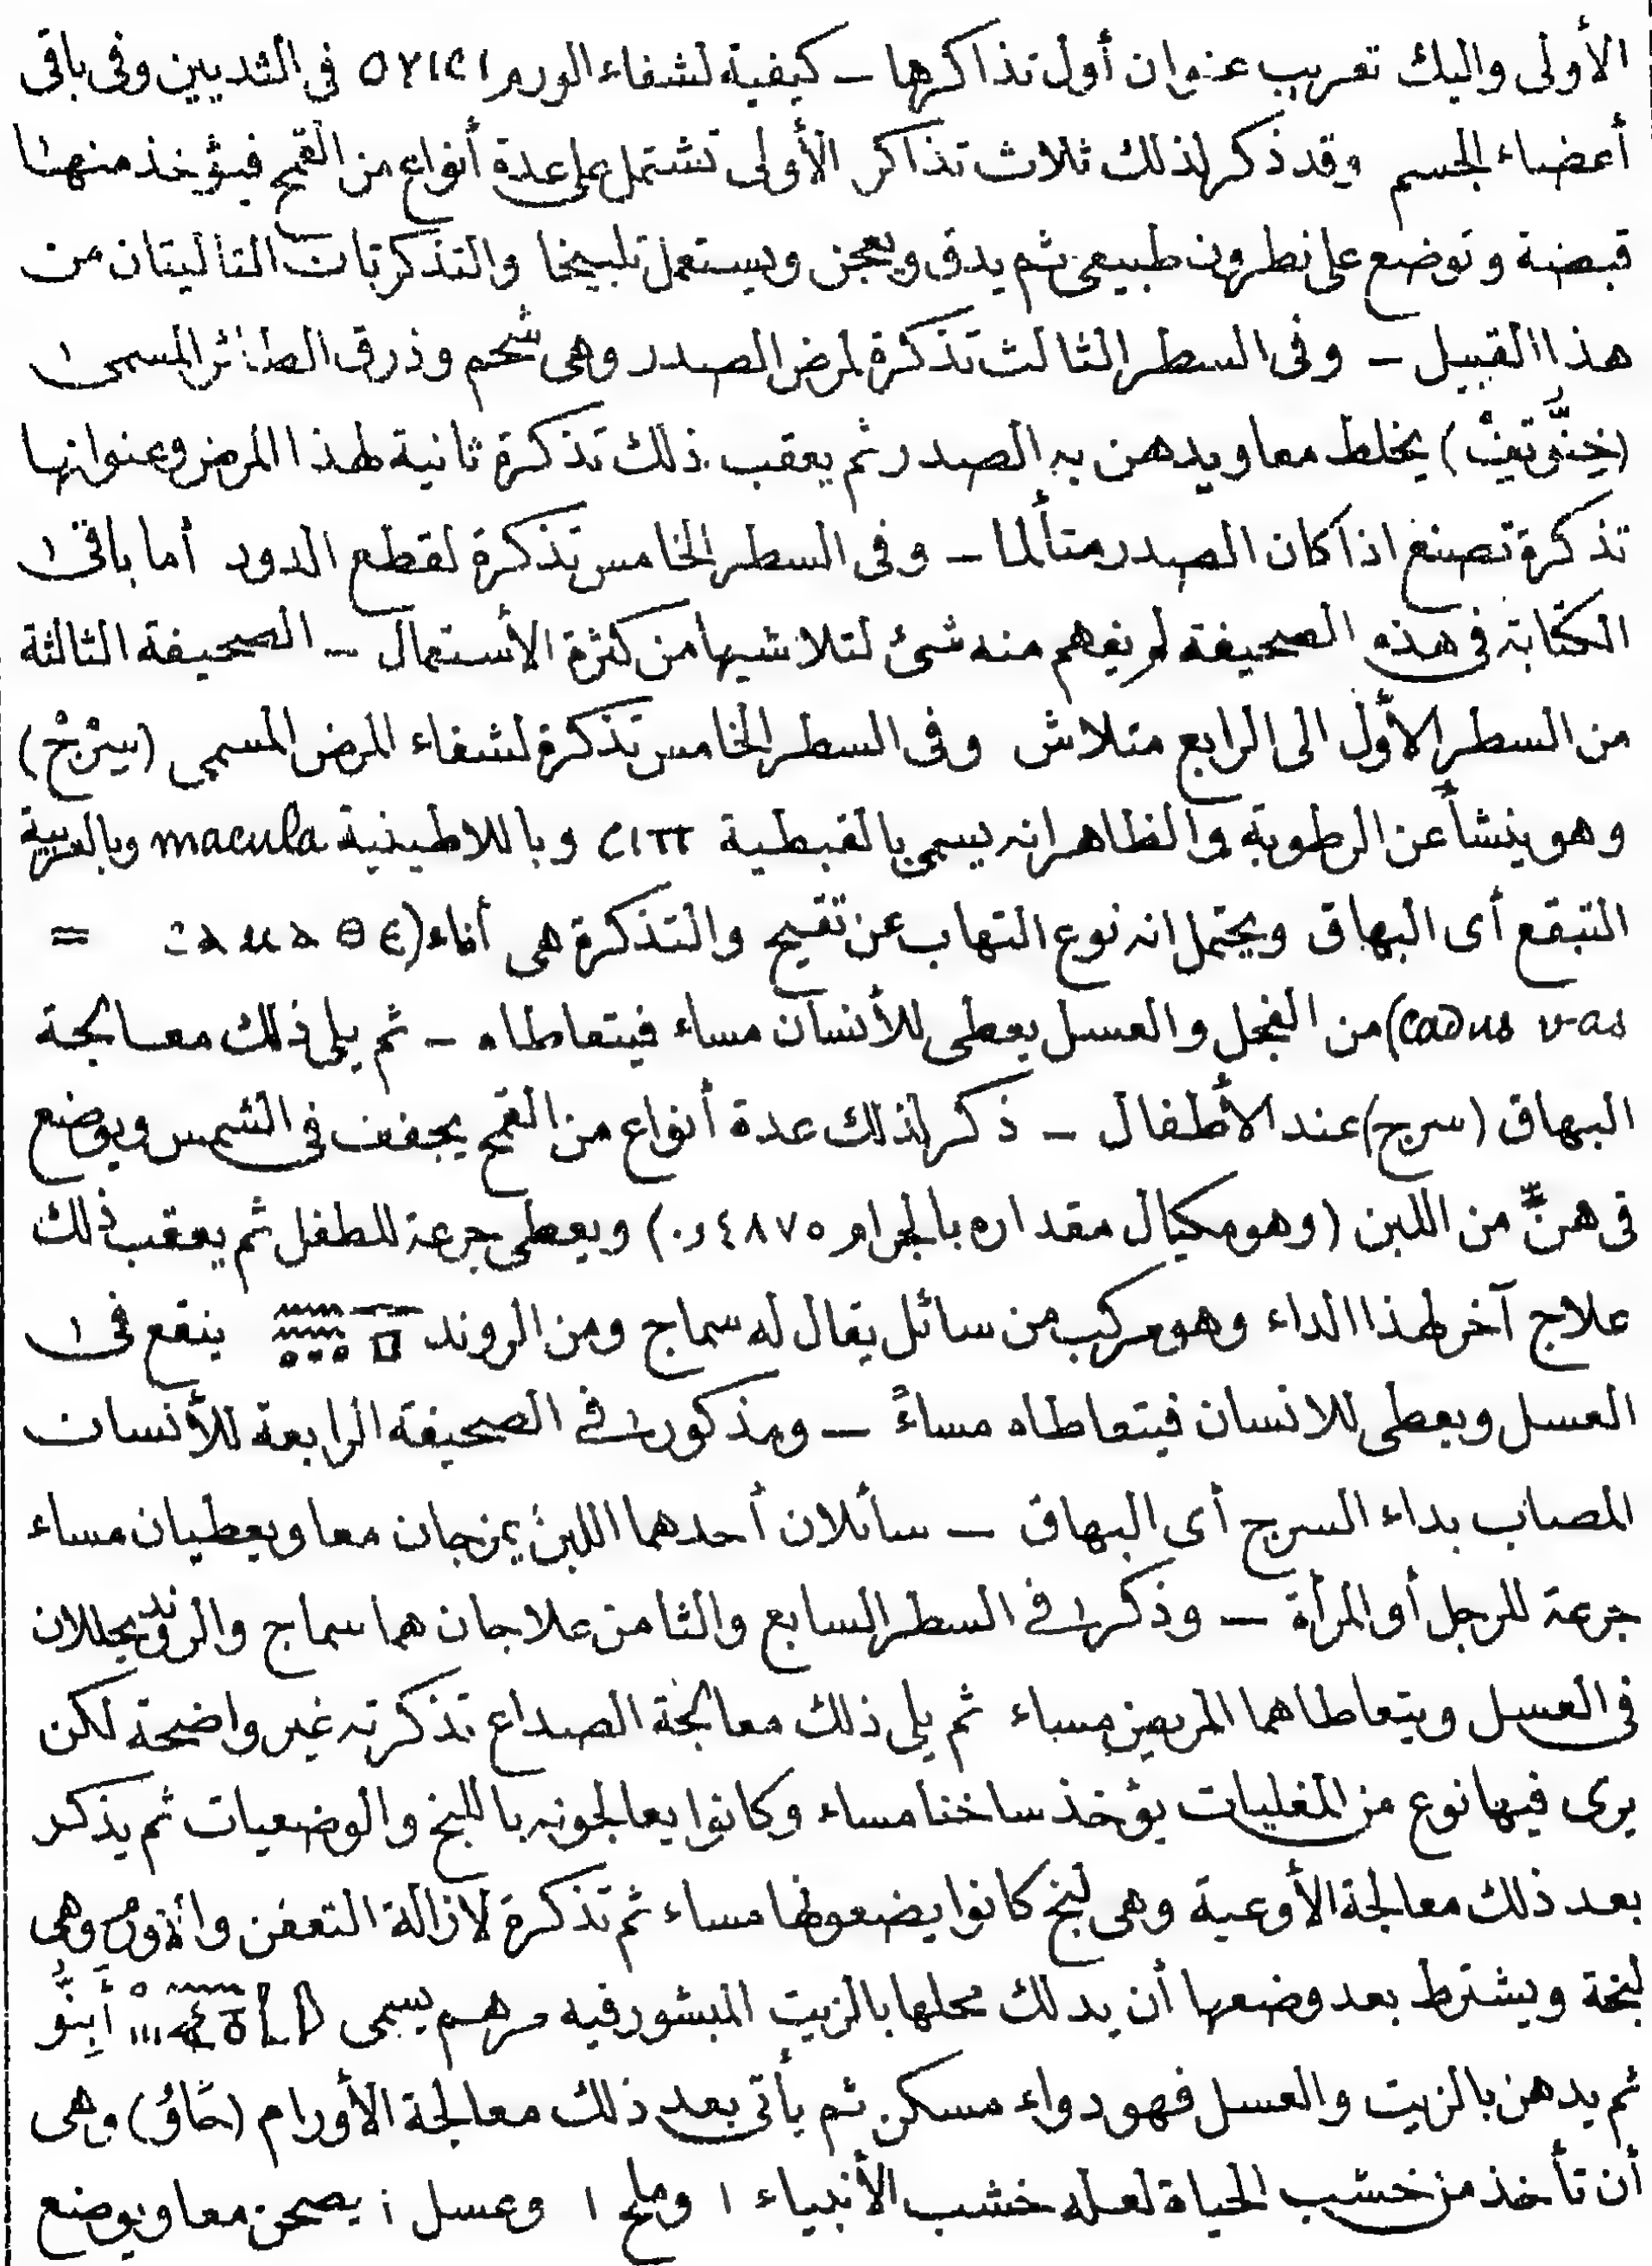 الأولى واليك تعريب عنوان أول تذاكرها – كيفية لشفاء الورم في الثديين وفى باقى
أعضاء الجسم وقد ذكر لذلك ثلاث تذاكر الأولى تشتمل على عدة أنواع من القمح فيؤخذ منها
قبضة وتوضع على نطرون طبيعى ثم يدق ويعجن ويستعمل تلبيخا والتذكرتان التاليتان من
هذا القبيل – وفى السطر الثالث تذكرة لمرض الصدر وهى شحم وذرق الطائر المسمى
يخلط معا ويدهن به الصدر ثم يعقب ذلك تذكرة ثانية لهذا المرض وعنوانها
تذكرة تصنع اذا كان الصدر متألما – وفى السطر الخامس تذكرة لقطع الدود أما باقى
الكتابة فى هذه الصحيفة لم يفهم منه شئ لتلاشيها من كثرة الأستعمال – الصحيفة الثالثة
من السطر الأول الى الرابع متلاش وفى السطر الخامس تذكرة لشفاء المرض المسمى (سِرْجْ)
وهو ينشأ عن الرطوبة والظاهر انه يسمى بالقبطية وباللاطينية macula وبالعربية
التبقع أى البهاق ويحتمل انه نوع التهاب عن تقيح والتذكرة هى أناء =
cadus vas) من الفجل والعسل يعطى للأنسان مساء فيتعاطاه – ثم يلى ذلك معالجة
البهاق (سرج) عند الأطفال – ذكر لذلك عدة أنواع من القمح يجفف فى الشمس ويوضع
فى هنّ من اللبن (وهو مكيال مقداره بالجرام ٤٨٧٥ر٠) ويعطى جرعة للطفل ثم يعقب ذلك
علاج آخر لهذا الداء وهو مركب من سائل يقال له سماج ومن الروند ينقع فى
العسل ويعطى للانسان فيتعاطاه مساءً – ومذكور فى الصحيفة الرابعة للأنسان
المصاب بداء السرج أى البهاق – سائلان أحدهما اللبن يمزجان معا ويعطيان مساء
جرعة للرجل أو المرأة – وذكر فى السطر السابع والثامن علاجان هما سماج والروند يحللان
فى العسل ويتعاطاهما المريض مساء ثم يلى ذلك معالجة الصداع تذكرته غير واضحة لكن
يرى فيها نوع من المغليات يؤخذ ساخنا مساء وكانوا يعالجونه باللبخ والوضعيات ثم يذكر
بعد ذلك معالجة الأوعية وهى لبخ كانوا يضعونها مساء ثم تذكرة لازالة التعفن وهى
لبخة ويشترط بعد وضعها أن يدلك محلها بالزيت المبشور فيه مرهم يسمى أَبِنُّو
ثم يدهن بالزيت والعسل فهو دواء مسكن ثم يأتى بعد ذلك معالجة الأورام وهى
أن تأخذ من خشب الحياة لعله خشب الأنبياء ١ وملح ١ وعسل ١ يصحن معا ويوضع